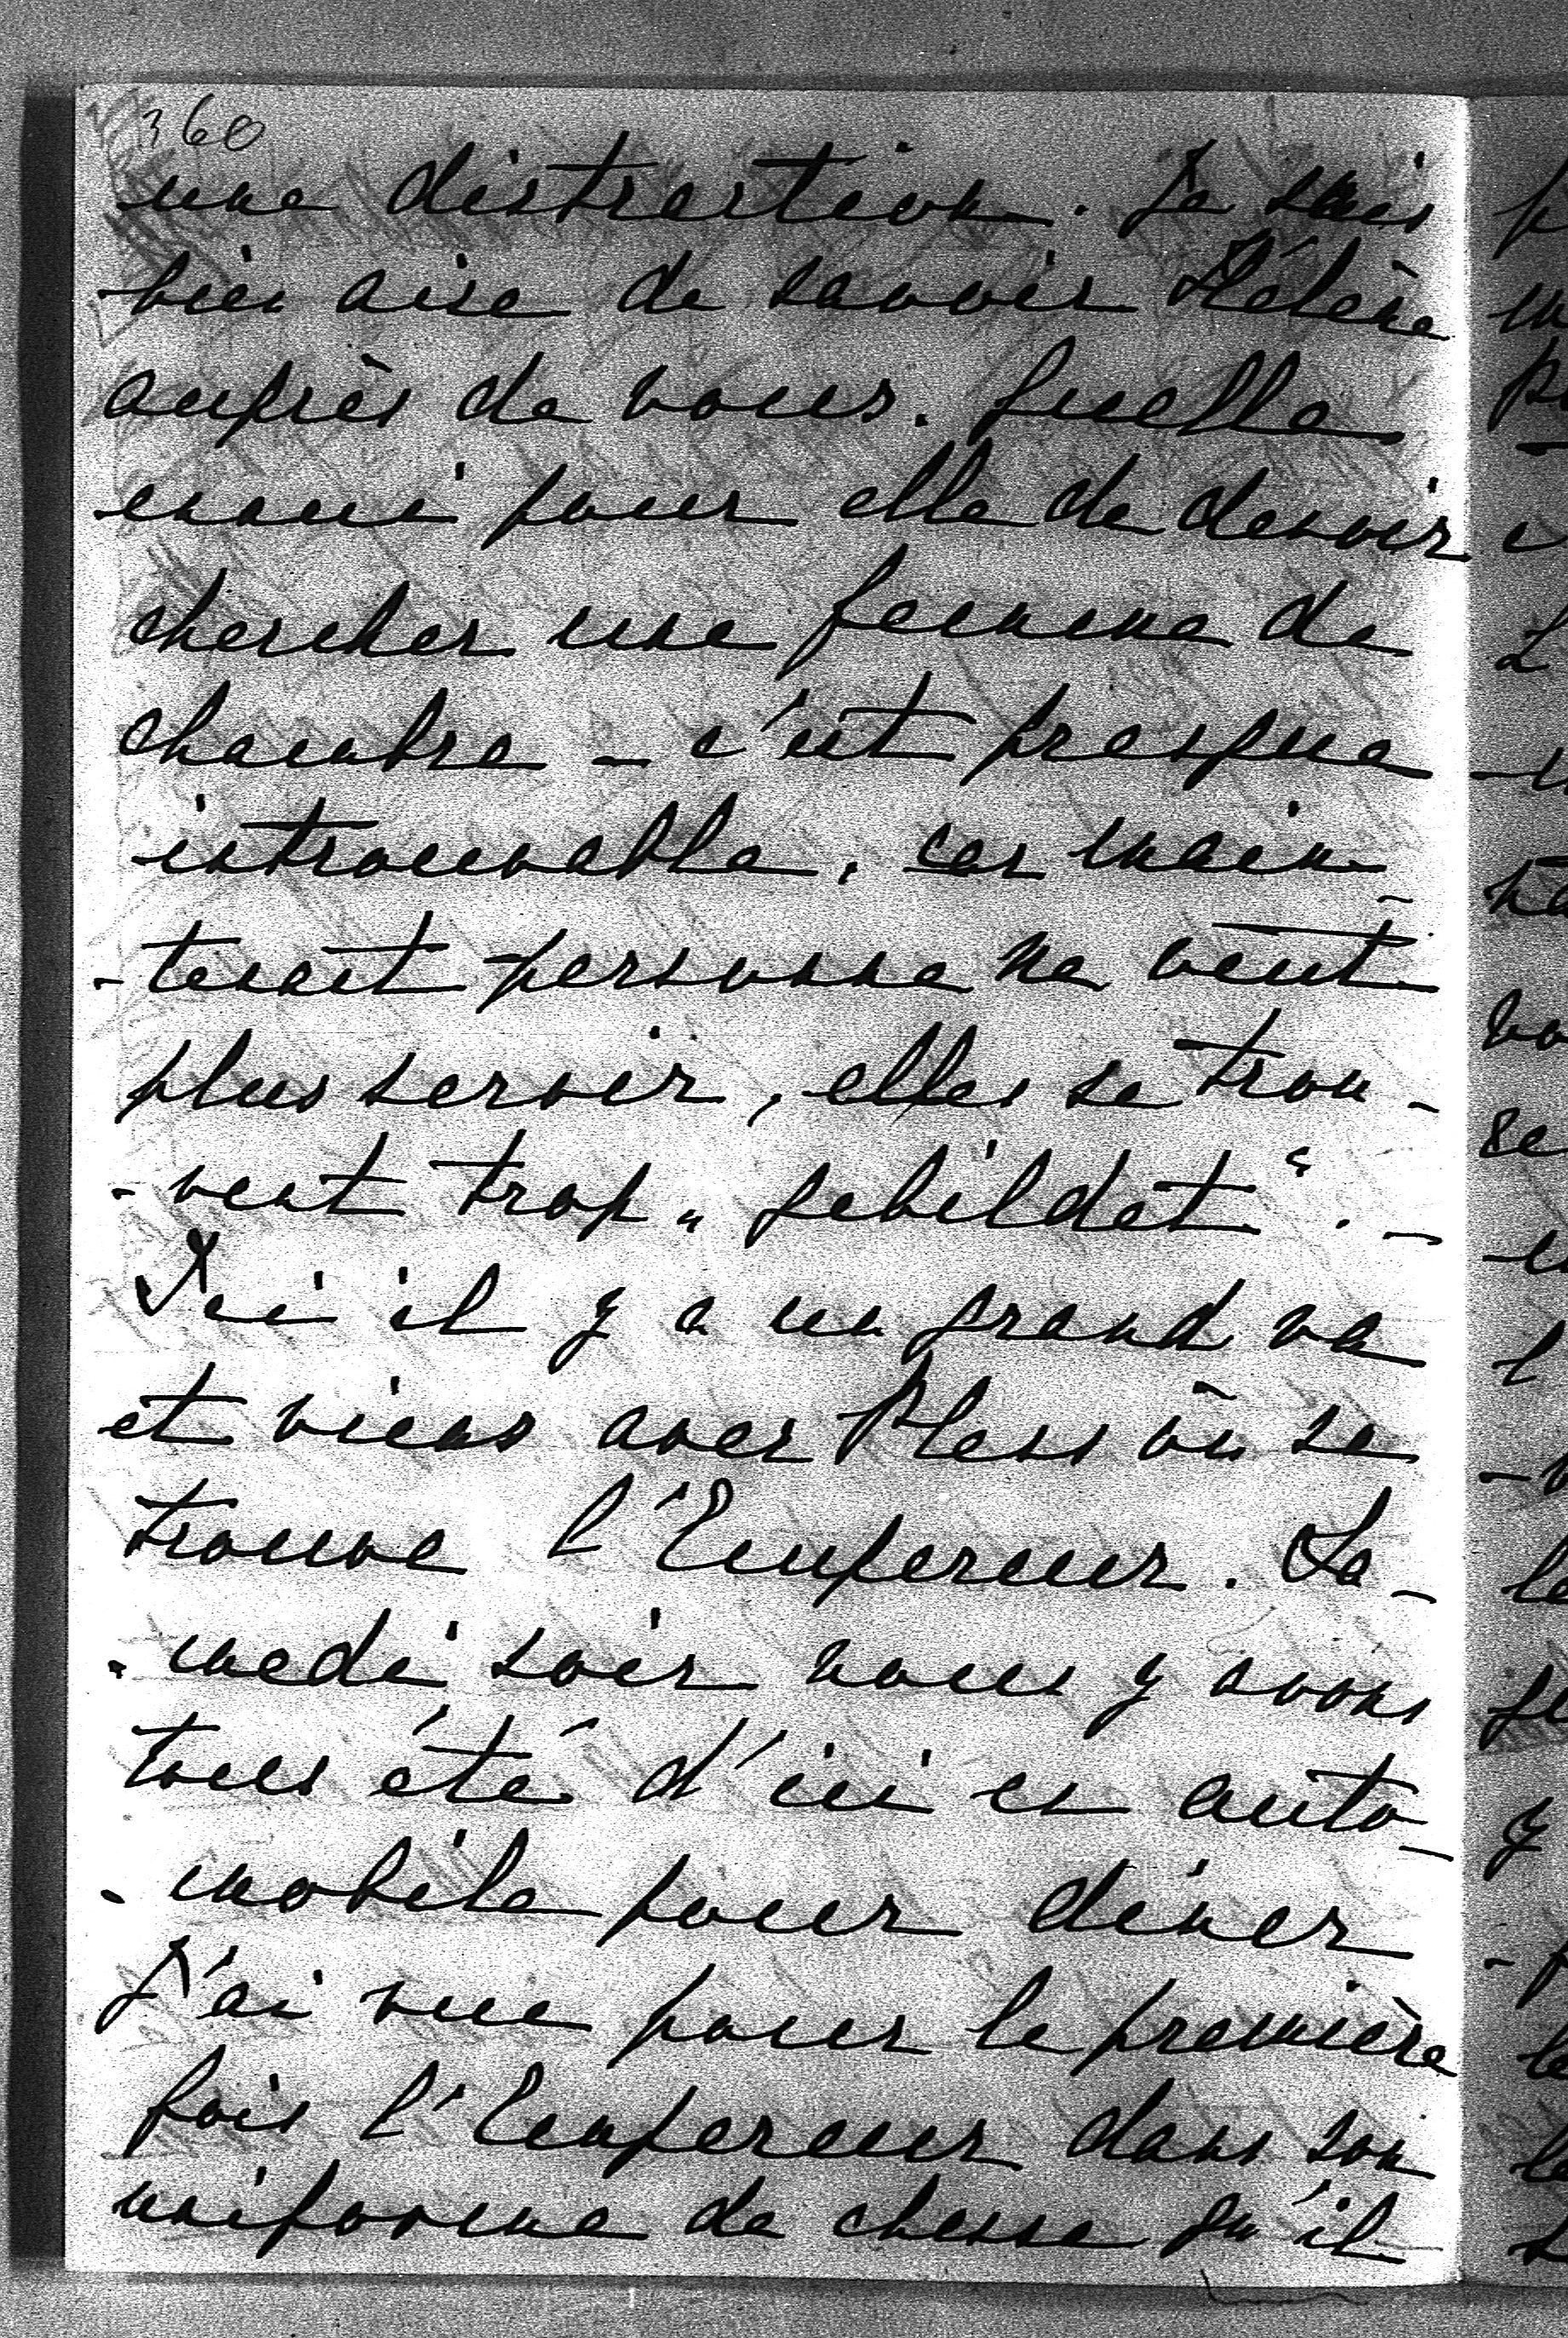 360
une distraction. Je suis
bien aise de savoir Hélène
auprès de vous. Quelle
ennui pour elle de devoir
chercher une femme de
chambre – c'est presque
introuvable, car main-
-tenant personne ne veut
plus servir, elles se trou-
-vent trop „gebildet“. –
Ici il y a un grand va
et viens avec Pless où se
trouve l'Empereur. Sa-
-medi soir nous y avons
tous été d'ici en auto-
-mobile pour dîner
J'ai vue pour la première
fois l'Empereur dans son
uniforme de chasse qu'il